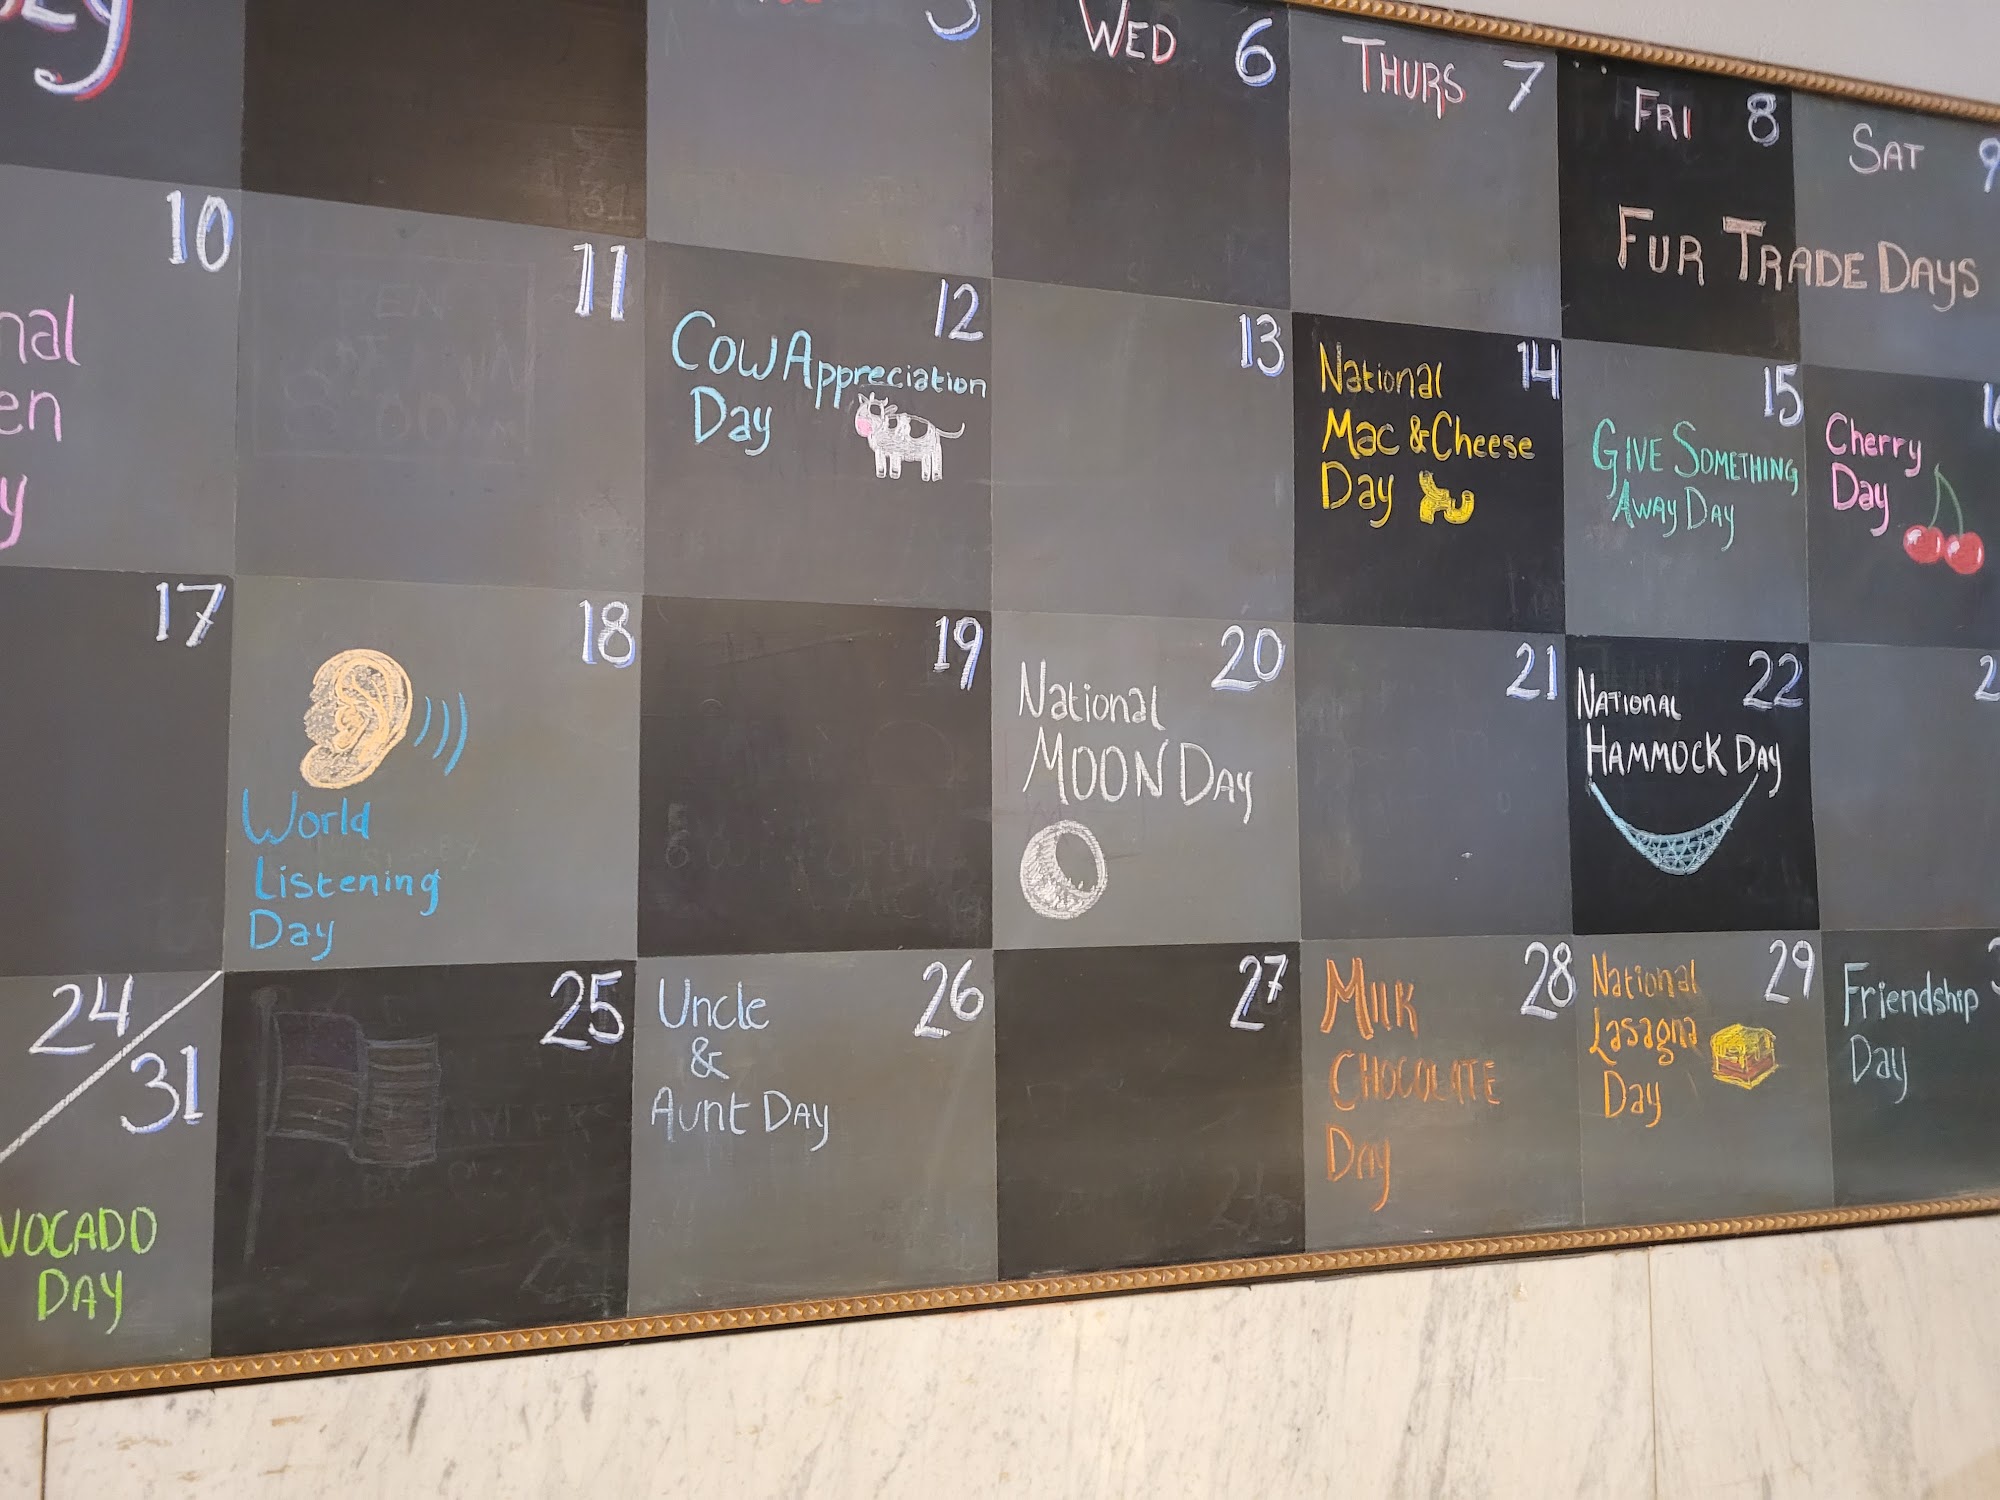 WED 6
THURS 7
FRI 8
SAT 9
FUR TRADE DAYS
10
11
12
Cow Appreciation
Day
13
14
National
Mac & Cheese
Day
15
GIVE SOMETHING
AWAY DAY
Cherry
Day
17
18
World
Listening
Day
19
20
National
MOON DAY
21
22
NATIONAL
HAMMOCK DAY
24/31
AVOCADO
DAY
25
26
Uncle
&
AUNT DAY
27
28
MILK
CHOCOLATE
DAY
29
National
Lasagna
Day
Friendship
Day